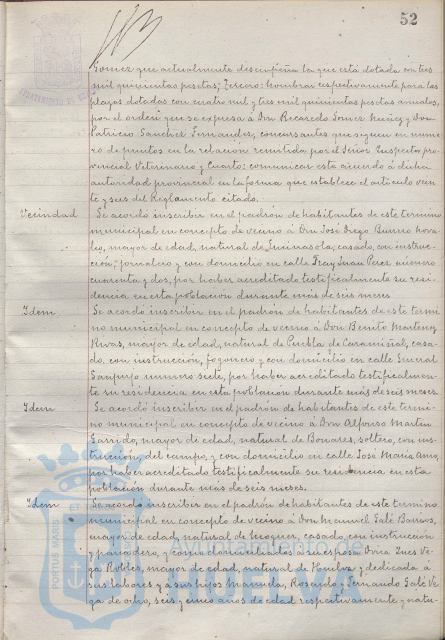 52
Gomez que actualmente desempeña la que está dotada con tres
mil quinientas pesetas; Tercero: Nombrar respectivamente para las
plazas dotadas con cuatro mil y tres mil quinientas pesetas anuales,
por el orden que se expresa á Don Recaredo Gomez Nuñez y Don
Patricio Sanchez Fernandez, concursantes que siguen en núme-
ro de puntos en la relación remitida por el Señor Inspector pro-
vincial Veterinario y Cuarto: comunicar este acuerdo á dicha
autoridad provincial en la forma que establece el artículo vein-
te y seis del Reglamento citado.
Vecindad Se acordó inscribir en el padrón de habitantes de este termino
municipal en concepto de vecino á Don José Diego Bueno
mayor de edad, natural de casado, con instruc-
ción, jornalero y con domicilio en calle Fray Juan Perez número
cuarenta y dos, por haber acreditado testificalmente su resi-
dencia en esta poblacion durante más de seis meses.
Idem Se acordó inscribir en el padrón de habitantes de este termi-
no municipal en concepto de vecino á Don Benito Martinez
Rivas, mayor de edad, natural de Puebla de Caramiñal, casa-
do, con instrucción, fogonero y con domicilio en calle General
Sanjurjo numero siete, por haber acreditado testificalmen-
te su residencia en esta poblacion durante más de seis meses.
Idem Se acordó inscribir en el padrón de habitantes de este termi-
no municipal en concepto de vecino á Don Alfonso Martin
Garrido, mayor de edad, natural de Bonares, soltero, con ins-
trucción, del campo, y con domicilio en calle José Maria Amo,
por haber acreditado testificalmente su residencia en esta
población durante más de seis meses.
Idem Se acordó inscribir en el padrón de habitantes de este termino
municipal en concepto de vecino á Don Manuel Galé Barros,
mayor de edad, natural de Moguer, casado, con instrucción
y panadero, y como domiciliados á su esposa Doña Ines Ve-
ga Robles, mayor de edad, natural de Huelva y dedicada á
sus labores y á sus hijos Manuela, Rosendo y Fernando Galé Ve-
ga de ocho, seis y cinco años de edad respectivamente y natu-
Ayuntamiento de
HUELVA
PORTUS MARIS